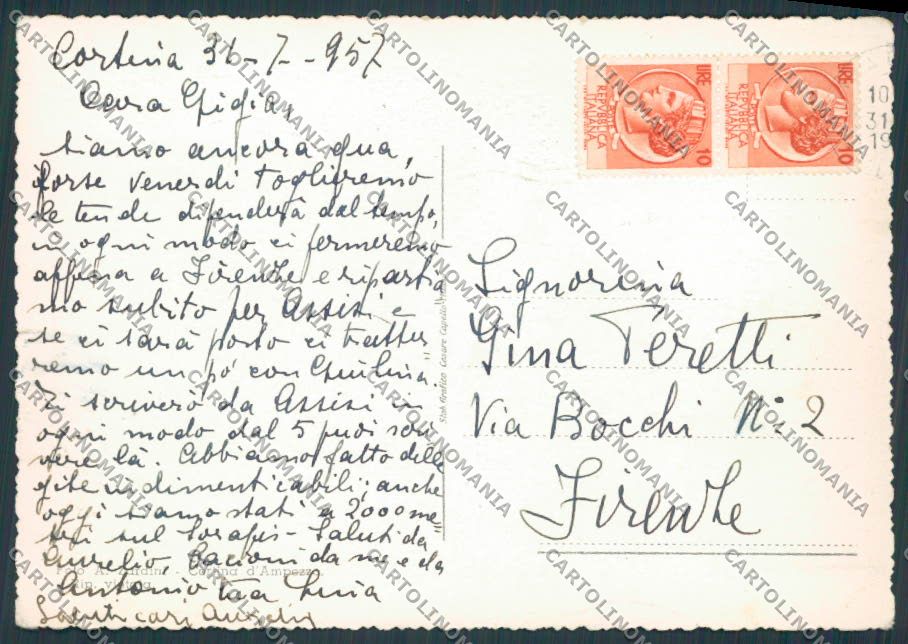 Cortina 31-7-957
Cara Gigia,
siamo ancora qua,
forse venerdì toglieremo
le tende dipenderà dal tempo,
in ogni modo ci fermeremo
appena a Firenze e ripartia
mo subito per Assisi e
se ci sarà posto ci tratter
remo un pò con Giulina.
Ti scriverò da Assisi in
ogni modo dal 5 puoi scri
vere là. Abbiamo fatto delle
gite indimenticabili; anche
oggi siamo stati a 2000 me
tri sul Sorapis - Saluti da
Aurelio, bacioni da me e da
Antonio tua
Saluti cari Aurelio
Cortina d'Ampezzo
Stab. Grafico Cesare Capello
LIRE 10
REPVBBLICA
ITALIANA
LIRE 10
REPVBBLICA
ITALIANA
10
31
19
Signorina
Gina Peretti
Via Bocchi N. 2
Firenze
CARTOLINOMANIA